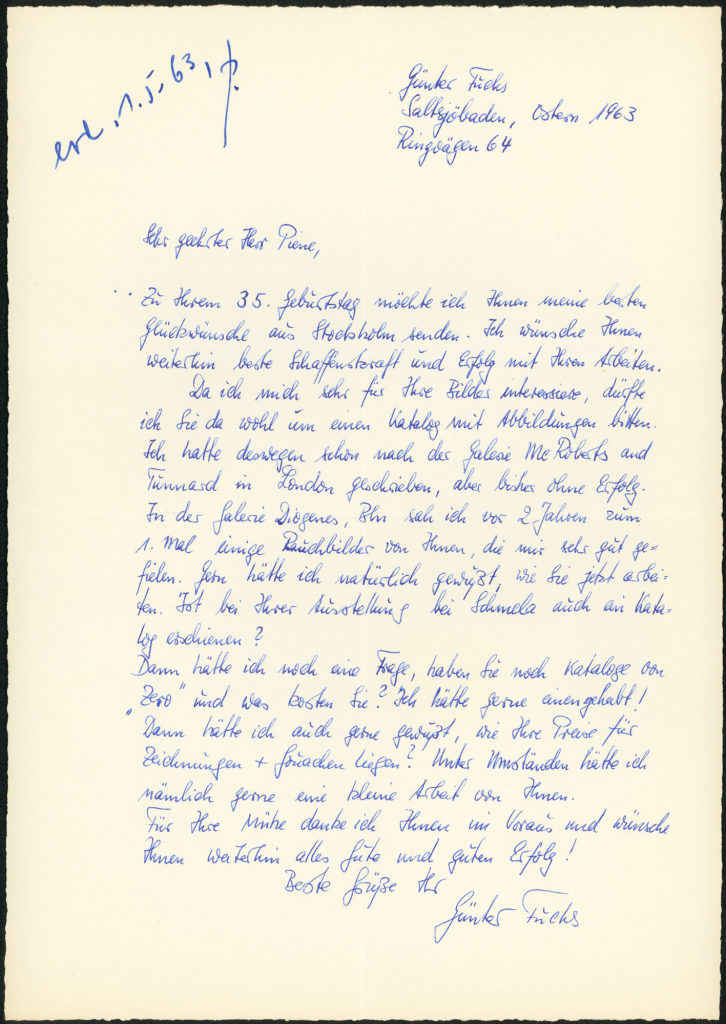 erl. 1.5.63, p.
Günter Fuchs
Saltsjöbaden, Ostern 1963
Ringvägen 64
Sehr geehrter Herr Piene,
Zu Ihrem 35. Geburtstag möchte ich Ihnen meine besten
Glückwünsche aus Stockholm senden. Ich wünsche Ihnen
weiterhin beste Schaffenskraft und Erfolg mit Ihren Arbeiten.
Da ich mich sehr für Ihre Bilder interessiere, dürfte
ich Sie da wohl um einen Katalog mit Abbildungen bitten.
Ich hatte deswegen schon nach der Galerie McRoberts and
Tunnard in London geschrieben, aber bisher ohne Erfolg.
In der Galerie Diogenes, Bln sah ich vor 2 Jahren zum
1. Mal einige Rauchbilder von Ihnen, die mir sehr gut ge=
fielen. Gern hätte ich natürlich gewußt, wie Sie jetzt arbei-
ten. Ist bei Ihrer Ausstellung bei Schmela auch ein Kata-
log erschienen?
Dann hätte ich noch eine Frage, haben Sie noch Kataloge von
„Zero" und was kosten Sie? Ich hätte gerne einen gehabt!
Dann hätte ich auch gerne gewußt, wie Ihre Preise für
Zeichnungen + Gouachen liegen? Unter Umständen hätte ich
nämlich gerne eine kleine Arbeit von Ihnen.
Für Ihre Mühe danke ich Ihnen im Voraus und wünsche
Ihnen weiterhin alles Gute und guten Erfolg!
Beste Grüße Ihr
Günter Fuchs